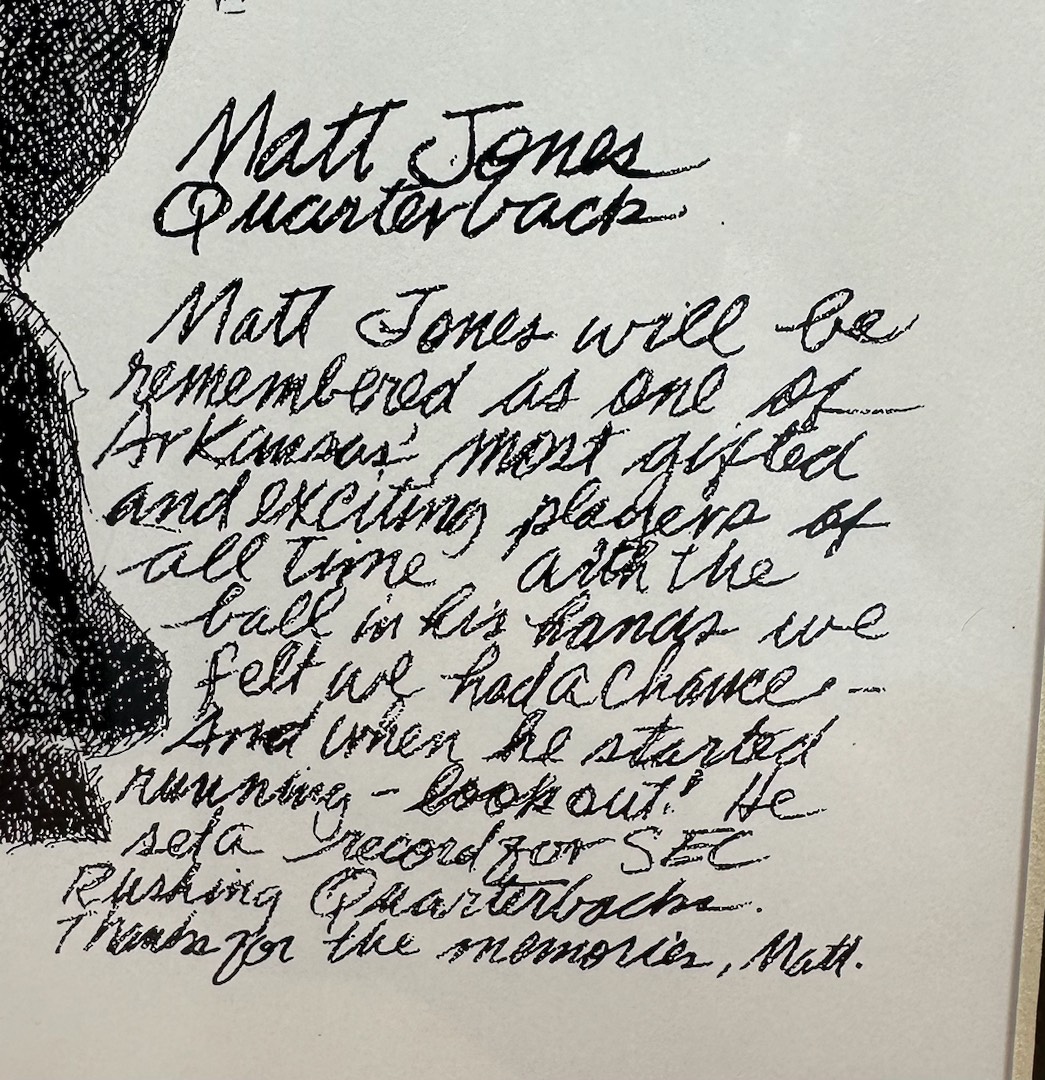 Matt Jones
Quarterback
Matt Jones will be
remembered as one of
Arkansas' most gifted
and exciting players of
all time with the
ball in his hands we
felt we had a chance -
And when he started
running - look out! He
set a record for SEC
Rushing Quarterbacks.
Thanks for the memories, Matt.